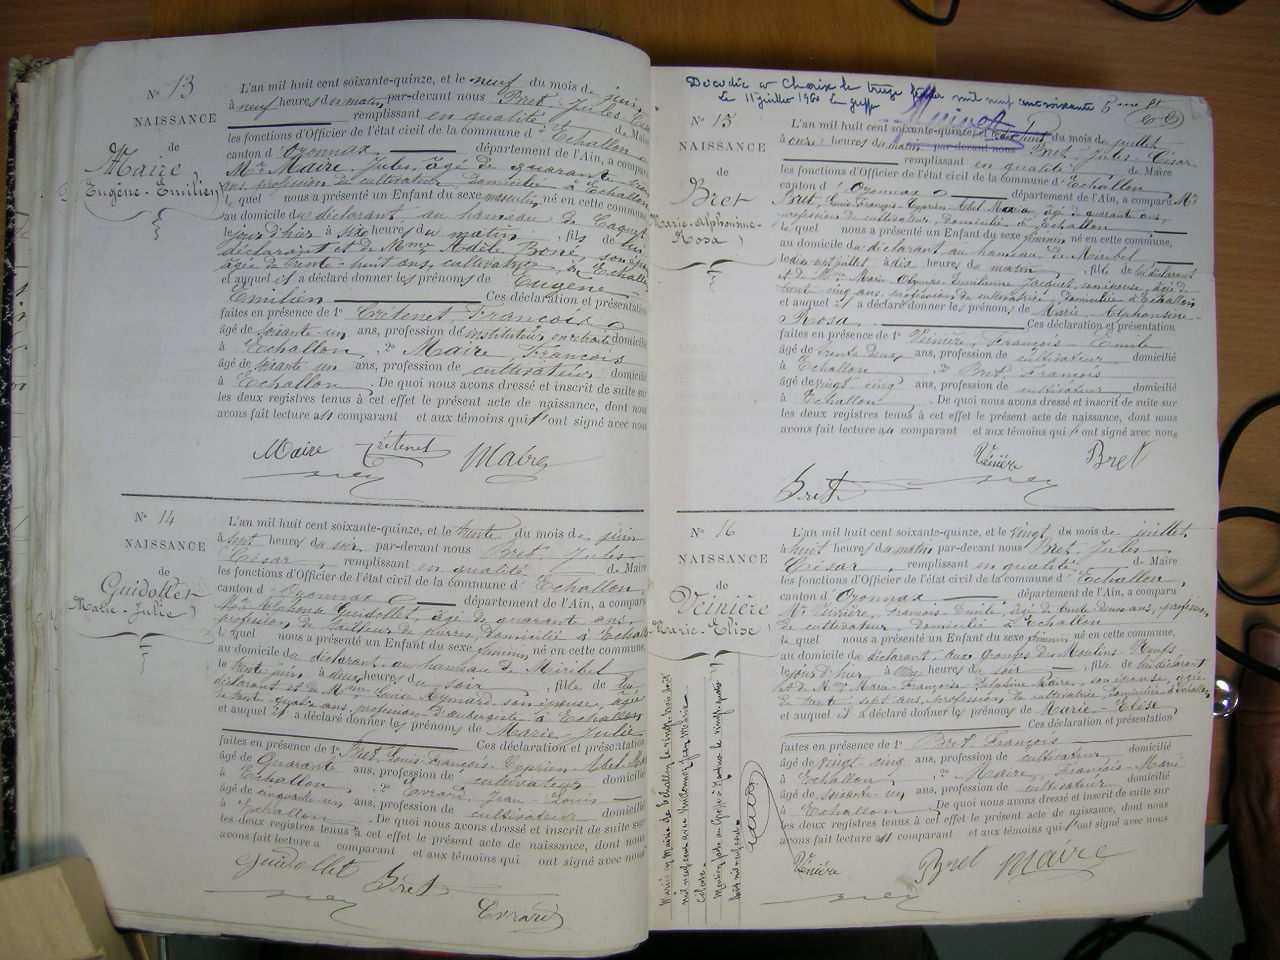 N° 13
NAISSANCE
de
Maire
Eugène-Emilien
L'an mil huit cent soixante-quinze, et le neuf du mois de juin
à neuf heures du matin par-devant nous Bret Jules César
remplissant en qualité de Maire
les fonctions d'Officier de l'état civil de la commune d'Echallon
canton d'Oyonnax département de l'Ain, a comparu
Mr Maire Jules, âgé de quarante
ans, profession de cultivateur domicilié à Echallon
le quel nous a présenté un Enfant du sexe masculin né en cette commune
au domicile du déclarant au hameau de
le jour d'hier à six heures du matin, fils de lui
déclarant et de Mme Adèle Boné, son épouse
âgée de trente-huit ans, cultivatrice, à Echallon
et auquel il a déclaré donner les prénoms de Eugène-
Emilien Ces déclaration et présentation
faites en présence de 1° Crétenet François
âgé de soixante-un ans, profession d'instituteur en retraite domicilié
à Echallon, 2° Maire, François
âgé de soixante un ans, profession de cultivateur domicilié
à Echallon. De quoi nous avons dressé et inscrit de suite sur
les deux registres tenus à cet effet le présent acte de naissance, dont nous
avons fait lecture au comparant et aux témoins qui l'ont signé avec nous
Maire Crétenet Maire
N° 14
NAISSANCE
de
Guidollet
Marie-Julie
L'an mil huit cent soixante-quinze, et le trente du mois de juin
à sept heures du soir par-devant nous Bret Jules
César, remplissant en qualité de Maire
les fonctions d'Officier de l'état civil de la commune d'Echallon,
canton d'Oyonnax département de l'Ain, a comparu
Mr Guidollet, âgé de quarante ans,
profession de tailleur de pierres, domicilié à Echallon
le quel nous a présenté un Enfant du sexe féminin né en cette commune,
au domicile du déclarant au hameau de Miribel
le trente juin à deux heures du soir, fille de lui
déclarant et de Mme Aymard son épouse, âgée
de trente quatre ans, profession d'aubergiste à Echallon
et auquel il a déclaré donner les prénoms de Marie-Julie
Ces déclaration et présentation
faites en présence de 1° Bret Louis-François-Cyprien-Abel-
âgé de Quarante ans, profession de cultivateur domicilié
à Echallon, 2° Evrard Jean-Louis
âgé de cinquante-un ans, profession de cultivateur domicilié
à Echallon. De quoi nous avons dressé et inscrit de suite sur
les deux registres tenus à cet effet le présent acte de naissance, dont nous
avons fait lecture a comparant et aux témoins qui ont signé avec nous
Guidollet Bret
Evrard
Décédée à le treize mil neuf cent soixante
Le 11 juillet 1960 Le greffier
N° 15
NAISSANCE
de
Bret
Marie-Alphonsine-
Rosa
L'an mil huit cent soixante-quinze, et le du mois de juillet
à onze heures du matin par-devant nous Bret Jules César
remplissant en qualité de Maire
les fonctions d'Officier de l'état civil de la commune d'Echallon
canton d'Oyonnax département de l'Ain, a comparu Mr
Bret, Louis-François-Cyprien-Abel- âgé de quarante ans,
profession de cultivateur, domicilié à Echallon
le quel nous a présenté un Enfant du sexe féminin né en cette commune,
au domicile du déclarant au hameau de Miribel
le juillet, à dix heures du matin, fille de lui déclarant
et de Mme Marie Jacquet, son épouse, âgée de
trente cinq ans, profession de cultivatrice, domiciliée à Echallon
et auquel il a déclaré donner les prénoms de Marie-Alphonsine-
Rosa. Ces déclaration et présentation
faites en présence de 1° Veinière, François-Emile
âgé de trente deux ans, profession de cultivateur domicilié
à Echallon, 2° Bret François
âgé de vingt cinq ans, profession de cultivateur domicilié
à Echallon. De quoi nous avons dressé et inscrit de suite sur
les deux registres tenus à cet effet le présent acte de naissance, dont nous
avons fait lecture au comparant et aux témoins qui l'ont signé avec nous
Veinière Bret
Bret
N° 16
NAISSANCE
de
Veinière
Marie-Elise
L'an mil huit cent soixante-quinze, et le vingt du mois de juillet
à huit heures du matin par-devant nous Bret Jules
César, remplissant en qualité de Maire
les fonctions d'Officier de l'état civil de la commune d'Echallon,
canton d'Oyonnax département de l'Ain, a comparu
Mr Veinière, François-Emile, âgé de trente deux ans, profession
de cultivateur, domicilié à Echallon
le quel nous a présenté un Enfant du sexe féminin né en cette commune,
au domicile du déclarant, aux granges du Moulin-Neuf
le jour d'hier à heures du soir, fille de lui déclarant
et de Mme Marie-Françoise Joséphine Maire, son épouse, âgée
de trente sept ans, profession de cultivatrice domiciliée à Echallon
et auquel il a déclaré donner les prénoms de Marie-Elise,
Ces déclaration et présentation
faites en présence de 1° Bret François
âgé de vingt cinq ans, profession de cultivateur domicilié
à Echallon, 2° Maire, François-Marie
âgé de soixante-un ans, profession de cultivateur domicilié
à Echallon. De quoi nous avons dressé et inscrit de suite sur
les deux registres tenus à cet effet le présent acte de naissance, dont nous
avons fait lecture au comparant et aux témoins qui l'ont signé avec nous
Veinière Bret Maire
Mariée en Mairie de Echallon le vingt trois août
mil neuf cent avec Jean Marie